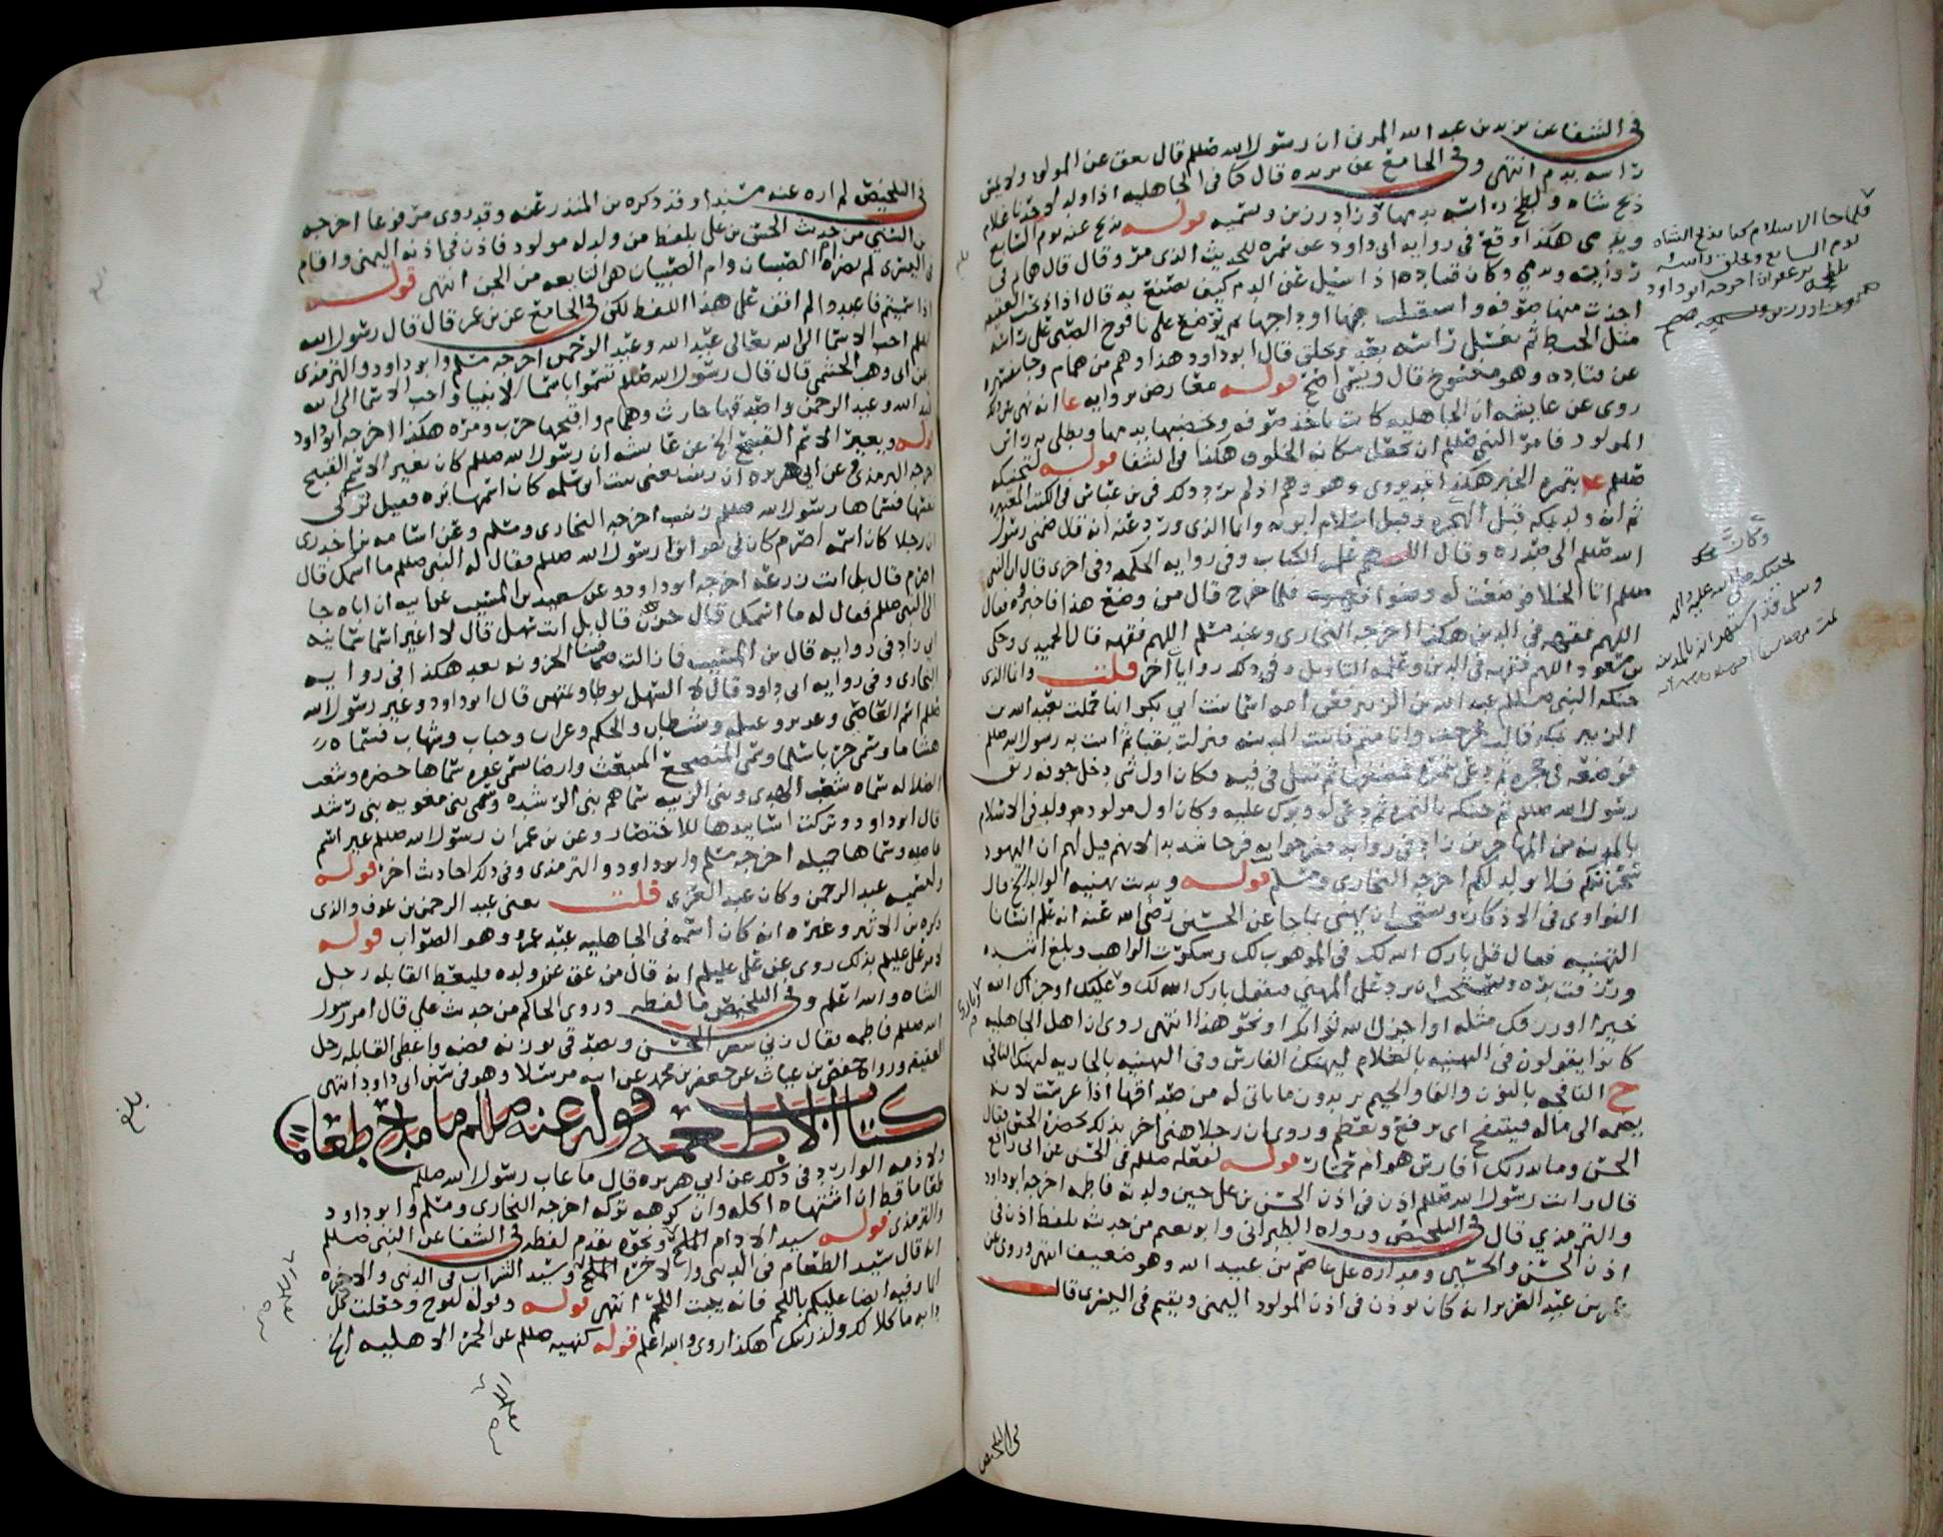 في الشفا عن يزيد بن عبد الله المزني ان رسول الله صللم قال يعق عن المولود ولا يمس
راسه بدم انتهى وفي الجامع عن بريده قال كنا في الجاهليه اذا ولد لاحدنا غلام
ذبح شاه ولطخ راسه بدمها قوله يذبح عنه يوم السابع
ويدمى هكذا وقع في روايه ابي داود عن سمره للحديث الذي مر وقال قال همام في
روايته ويدمى وكان قتاده اذا سئل عن الدم كيف يصنع به قال اذا ذبحت العقيقه
اخذت منها صوفه واستقبلت بها اوداجها ثم توضع على يافوخ الصبي على راسه
مثل الخيط ثم يغسل راسه بعد ويحلق قال ابو داود هذا وهم من همام وجا تفسيره
عن قتاده وهو منسوخ قال ويسمى اصح قوله معارض بروايه
روى عن عايشه ان الجاهليه كانت تاخذ صوفه وتخضبها بدمها ويطلى به راس
المولود فامر النبي صللم ان يجعل مكانه الخلوق هكذا في الشفا قوله لتحنيكه
صللم بتمره الخبر هكذا
ثم انه ولد بمكه قبل الهجره وقبل اسلام ابويه وانما الذي ورد عنه انه قال ضمني رسول
الله صللم الى صدره وقال اللهم علمه الكتاب وفي روايه الحكمه وفي اخرى قال ان النبي
صللم اتى الخلا فوضعت له وضوا فلما خرج قال من وضع هذا فاخبر فقال
اللهم فقهه في الدين هكذا اخرجه البخاري وعند مسلم اللهم فقهه قال الحميدي وحكى
بن مسعود اللهم فقهه في الدين وعلمه التاويل وفي ذلك روايات اخر قلت وانما الذي
حنكه النبي صللم عبد الله بن الزبير فعن امه اسما بنت ابي بكر انها حملت بعبد الله بن
الزبير بمكه قالت فخرجت وانا متم فاتيت المدينه فنزلت بقبا ثم اتيت به رسول الله صللم
فوضعه في حجره ثم دعى بتمره فمضغها ثم تفل في فيه فكان اول شي دخل جوفه ريق
رسول الله صللم ثم حنكه بالتمره ثم دعى له وبرك عليه وكان اول مولود ولد في الاسلام
بالمدينه من المهاجرين زاد في روايه ففرحوا به فرحا شديدا لانهم قيل لهم ان اليهود
سحرتكم فلا يولد لكم اخرجه البخاري ومسلم قوله وندبت تهنيه الوالد الخ قال
النواوي في الاذكار ويستحب ان يهنى بما جا عن الحسين رضي الله عنه انه علم انسانا
التهنيه فقال قل بارك الله لك في الموهوب لك وشكرت الواهب وبلغ اشده
ورزقت بره ويستحب ان يرد على المهني فيقول بارك الله لك وعليك او جزاك الله
خيرا او رزقك مثله او اجزل الله ثوابك او نحو هذا انتهى روى ان اهل الجاهليه
كانوا يقولون في التهنيه بالغلام ليهنك الفارس وفي التهنيه بالجاريه ليهنك النافجه
ح النافجه بالنون والفا والجيم يريدون ما ياتي له من صداقها اذا عرست لانه
يضمه الى ماله فينتفج اي يرفع ويعظم وروي ان رجلا هنى اخر بذلك بحضرة الحسن فقال
الحسن وما يدريك افارس هو ام حمار قوله لفعله صللم في الحسن عن ابي رافع
قال رايت رسول الله صللم اذن في اذن الحسن بن علي حين ولدته فاطمه اخرجه ابو داود
والترمذي قال في التلخيص ورواه الطبراني وابو نعيم من حديثه بلفظ اذن في
اذن الحسن والحسين ومداره على عاصم بن عبيد الله وهو ضعيف انتهى وروي عن
عمر بن عبد العزيز انه كان يوذن في اذن المولود اليمنى ويقيم في اليسرى قال
في التلخيص
فلما جا الاسلام كنا نذبح الشاه
يوم السابع ونحلق راسه
ونلطخه بزعفران اخرجه ابو داود
في التلخيص لم اره عنه مسندا وقد ذكره بن المنذر عنه وقد روي مرفوعا اخرجه
بن السني من حديث الحسين بن علي بلفظ من ولد له مولود فاذن في اذنه اليمنى واقام
في اليسرى لم تضره ام الصبيان وام الصبيان هي التابعه من الجن انتهى قوله
اذا سميتم فاعبدوا لم اقف على هذا اللفظ لكن في الجامع عن بن عمر قال قال رسول الله
صللم احب الاسما الى الله تعالى عبد الله وعبد الرحمن اخرجه مسلم وابو داود والترمذي
عن ابي وهب الجشمي قال قال رسول الله صللم تسموا باسما الانبيا واحب الاسما الى الله
عبد الله وعبد الرحمن واصدقها حارث وهمام واقبحها حرب ومره هكذا اخرجه ابو داود
قوله ويغير الاسم القبيح الخ عن عايشه ان رسول الله صللم كان يغير الاسم القبيح
اخرجه الترمذي وعن ابي هريره ان زينب يعني بنت ابي سلمه كان اسمها بره فقيل تزكي
نفسها فسماها رسول الله صللم زينب اخرجه البخاري ومسلم وعن اسامه بن اخدري
ان رجلا كان اسمه اصرم كان في نفر اتوا رسول الله صللم فقال له النبي صللم ما اسمك قال
اصرم قال بل انت زرعه اخرجه ابو داود وعن سعيد بن المسيب عن ابيه ان اباه جا
الى النبي صللم فقال له ما اسمك قال حزن قال بل انت سهل قال لا اغير اسما سمانيه
ابي زاد في روايه قال بن المسيب فما زالت فينا الحزونه بعد هكذا في روايه
البخاري وفي روايه ابي داود قال لا السهل يوطا ويمتهن قال ابو داود وغير رسول الله
صللم اسم العاصي وعزيز وعتله وشيطان والحكم وغراب وحباب وشهاب فسماه
هشاما وسمى حربا سلما وسمى المضطجع المنبعث وارضا تسمى عفره سماها خضره وشعب
الضلاله سماه شعب الهدى وبني الزنيه سماهم بني الرشده وسمى بني مغويه بني رشد
قال ابو داود وتركت اسانيدها للاختصار وعن بن عمر ان رسول الله صللم غير اسم
عاصيه وسماها جميله اخرجه مسلم وابو داود والترمذي وفي ذلك احاديث اخر قوله
وتسميه عبد الرحمن وكان عبد العزى قلت يعني عبد الرحمن بن عوف والذي
ذكره بن الاثير وغيره انه كان اسمه في الجاهليه عبد عمرو وهو الصواب قوله
لامر علي عليلم بذلك روي عن علي عليلم انه قال من عق عن ولده فليعط القابله رجل
الشاه والله اعلم وفي التلخيص ما لفظه وروى الحاكم من حديث علي قال امر رسول
الله صللم فاطمه فقال زني شعر الحسين وتصدقي بوزنه فضه واعطي القابله رجل
العقيقه ورواه حفص بن غياث عن جعفر بن محمد عن ابيه مرسلا وهو في سنن ابي داود انتهى
كتاب الاطعمه قوله عنه صللم ما مدح طعاما
ولا ذمه الوارد في ذلك عن ابي هريره قال ما عاب رسول الله صللم
طعاما قط ان اشتهاه اكله وان كرهه تركه اخرجه البخاري ومسلم وابو داود
والترمذي قوله سيد الادام الملح ونحوه تقدم لفظه في الشفا عن النبي صللم
انه قال سيد الطعام في الدنيا والاخره اللحم وسيد الشراب في الدنيا والاخره
الما وفيه ايضا عليكم باللحم فانه ينبت اللحم انتهى قوله وقوله لنوح وجعلت كل
دابه ماكلا لك ولذريتك هكذا روي والله اعلم قوله كنهيه صللم عن الحمر الاهليه الخ
بلغ